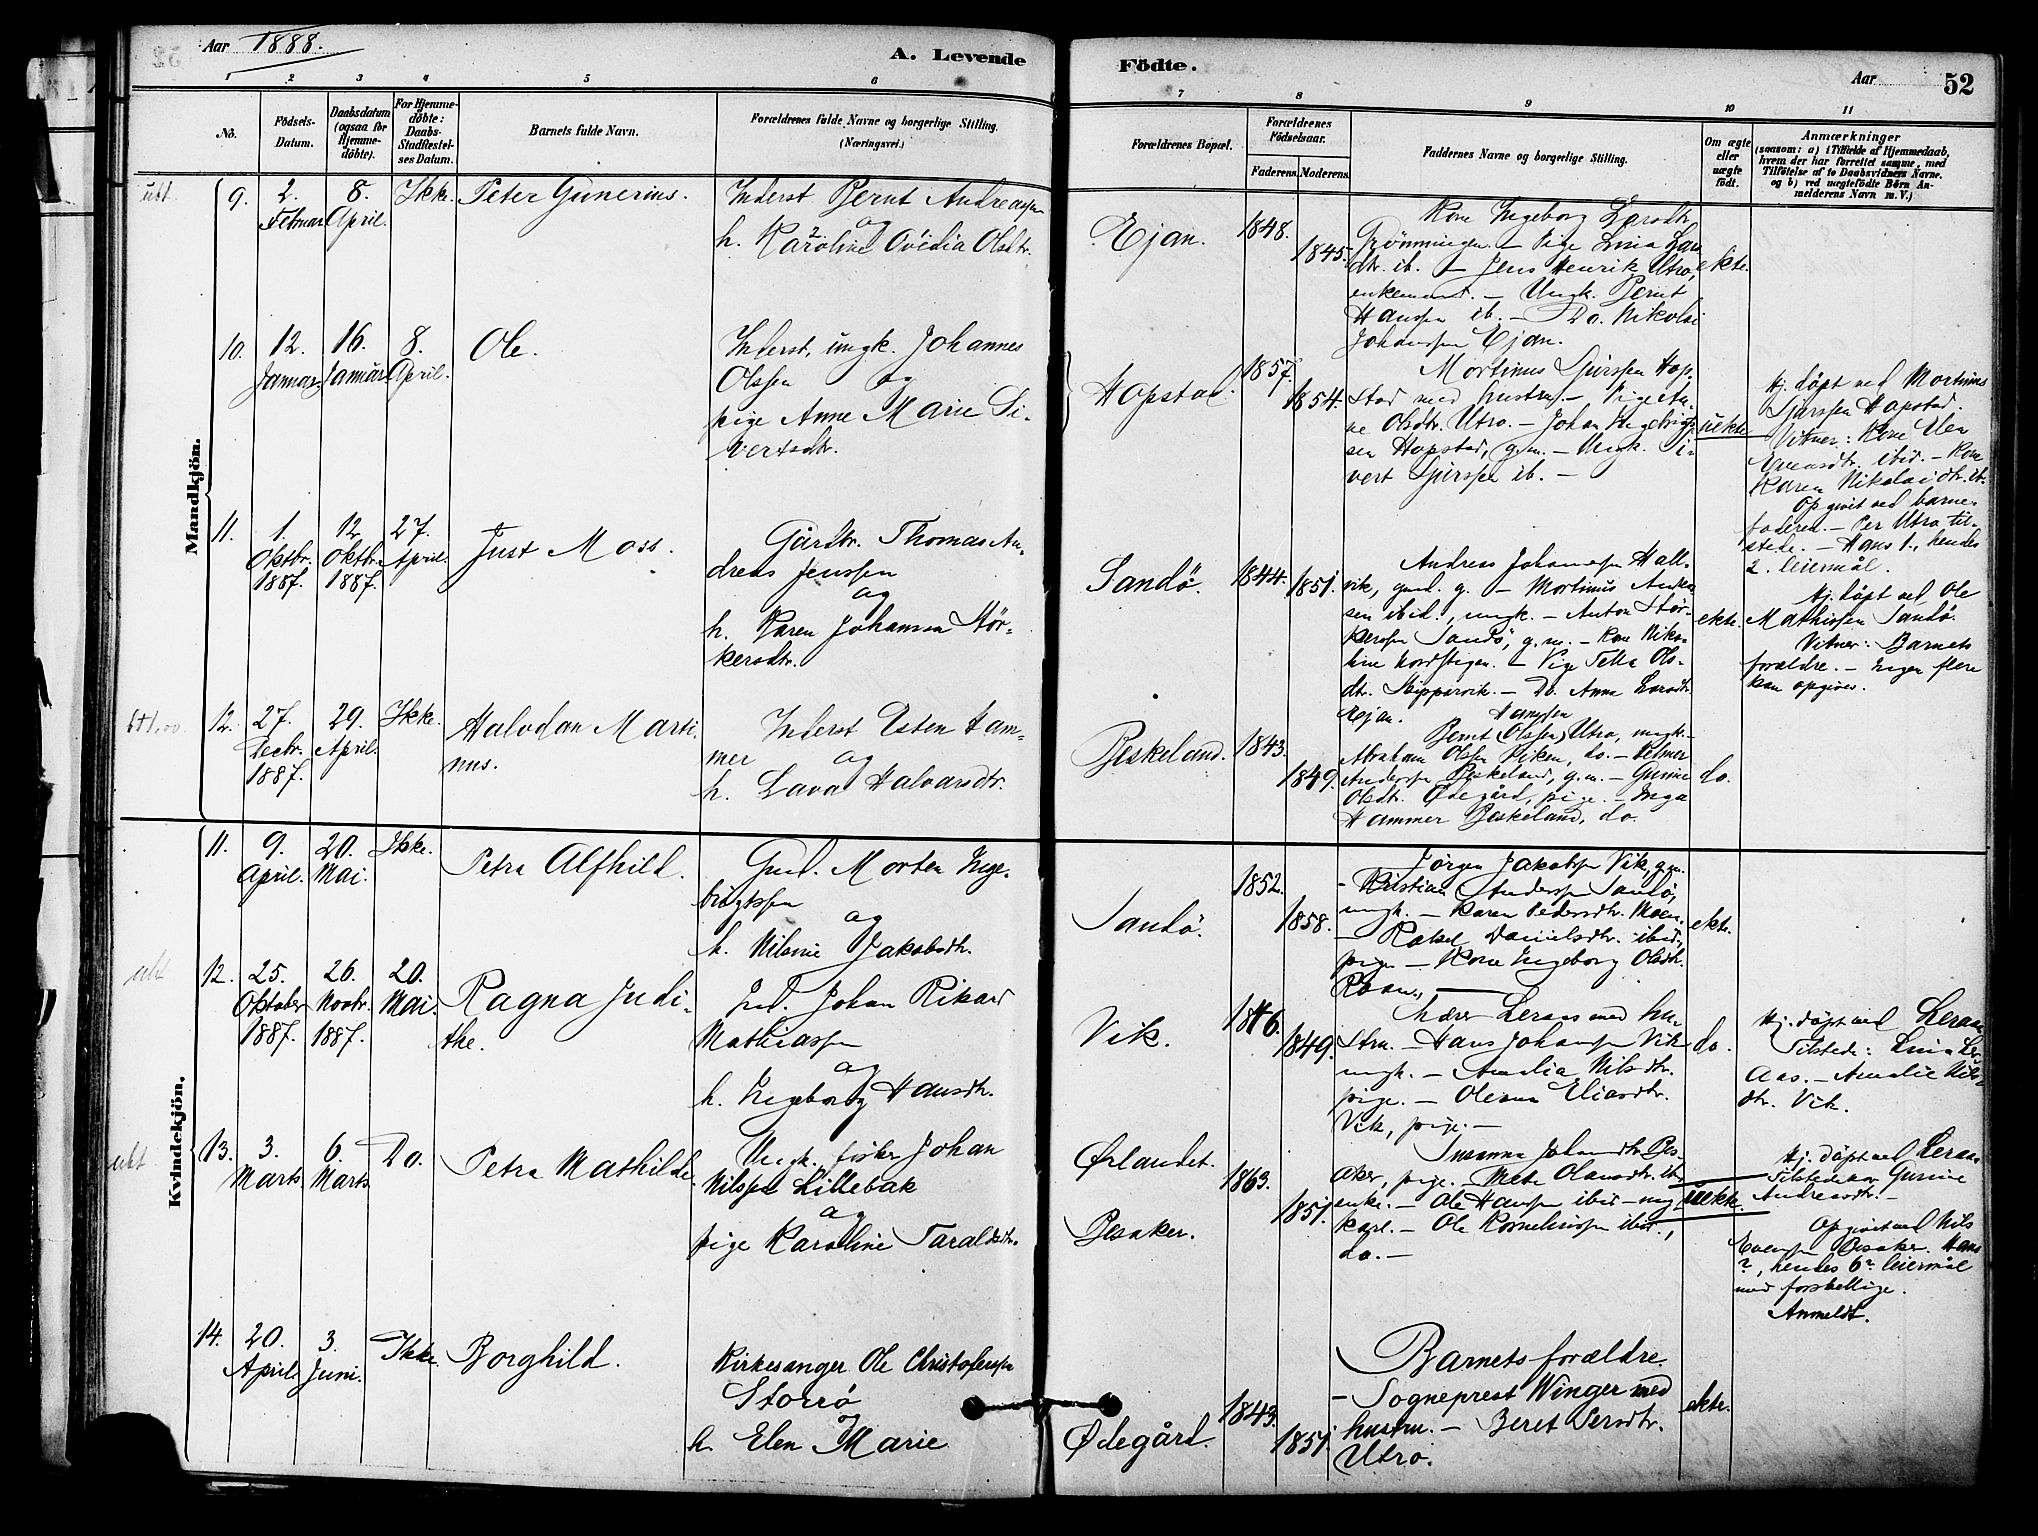 Aar 1888.
A. Levende
Födte.
Aar
52
1 2 3 4 5 6
7 8 9 10 11
No.
Födsels-Datum.
Daabsdatum (ogsaa for Hjemme-döbte).
For Hjemme-döbte: Daabs-Stadfæstel-ses Datum.
Barnets fulde Navn.
Forældrenes fulde Navne og borgerlige Stilling.
(Næringsvei.)
Forældrenes Bopæl.
Forældrenes Födselsaar.
Faderens. Moderens.
Faddernes Navne og borgerlige Stilling.
Om ægte eller uægte födt.
Anmærkninger
(saasom: a) i Tilfælde af Hjemmedaab,
hvem der har forrettet samme, med
Tilföielse af to Daabsvidners Navne.
og b) ved uægtefödte Börn An-
melderens Navn m. V.)
Mandkjön.
9. 2. Februar 8. April. Ikke. Peter Gunerius.
Inderst Bernt Andreassen
og
h. Karoline Ovedia Olsdtr.
Ejan. 1848. 1845.
Kone Ingeborg Larsdtr.
Grönningen. – Pige Lina Lars
dtr. ib. – Jens Henrik Utro,
enkemand. – Ungk. Bernt
Hanssen ib. – Do. Nikolai
Johanssen Ejan.
ekte.
10. 12. Januar. 16. Januar 8. April. Ole.
Inderst, ungk. Johannes
Olssen og
pige Anne Marie Si-
vertsdtr.
Hopstad. 1857. 1854.
Mortinus Sjurssen Hop-
stad med hustru. – Pige An-
ne Olsdtr. Utro. – Johan Ingebrigt-
sen Hopstad, g.m. – Ungk. Si-
vert Sjurssen ib. –
uekte
Hj. döpt ved Mortinus
Sjurssen Hopstad.
Vitner: Kone
Evensdtr. ibid. – Kone
Karen Nikolaidtr. ib.
Opgivet ved barne-
faderen. – Per Utro til-
stede. – Hans 1., hendes
2. leiermål.
11. 1. Oktbr. 1887. 12 Oktbr. 1887. 27. April. Just Moss.
Gårdbr. Thomas An-
dreas Jenssen
og
h. Karen Johanna Stör-
kersdtr.
Sandö. 1844. 1851.
Andreas Johanssen Hall-
vik, gmd. g. – Mortinus Andrea-
sen ibid., ungk. – Anton Stör-
kerssen Sandö, g.m. – Kone Niko-
line Nordstigen. – Pige Ols-
dtr. Skippervik. – Do. Anna Larsdtr.
Ejan.
ekte.
Hj. döpt ved Ole
Mathissen Sandö.
Vitner: Barnets
forældre. – Ingen flere
kan opgives.
12. 27. Decbr. 1887. 29. April. Ikke. Halvdan Marti-
nus.
Inderst Esten Ham-
mer og
h. Lava Halvarsdtr.
Beskeland. 1843. 1849.
Hanssen
Bernt (Olssen) Utro, ungk. –
Abraham Olssen do. –
Anderssen Beskeland, g.m. – Gurine
Olsdtr. Ødegård, pige. – Inga
Hammer Beskeland, do.
do.
Kvindekjön.
11. 9. April. 20. Mai. Ikke. Petra Alfhild.
Gmd. Morten Inge-
brigtssen
og
h. Nilsine Jakobsdtr.
Sandö. 1852. 1858.
Jörgen Jakobssen Vik, g.m.
– Kristian Anderssen Sandö,
ungk. – Karen Pedersdtr. Moen.
– Rakel Danielsdtr. ibid.,
pige. – Kone Ingeborg Olsdtr.
Roan.
ekte.
ukt 12. 25. Oktober 1887. 26. Novbr. 1887. 20. Mai. Ragna Judi-
the.
Ind. Johan Rikard
Mathiassen
og
h. Ingeborg Hansdtr.
Vik. 1849.
Lærer Leraas med hu-
stru. – Hans Johanssen Vik
ungk. – Amalia Nilsdtr.
pige. – Oleana Eliasdtr.
Vik, pige. –
do.
Hj. döpt ved Leraas
Tilstede: Lina Ler-
aas. – Amalie Nils-
dtr. Vik.
ukt 13. 3. Marts. 6. Marts. Do. Petra Mathilde
Ungk. fisker Johan
Nilssen Lillebak
og
pige Karoline Taraldsdtr.
Ørlandet.
Besaker. 1863. 1851.
Susanna Johansdtr. Bes-
aker, pige. – Mette Olausdtr. ib.
enke. – Ole Hanssen ibid. – ung
karl. – Ole Korneliussen ibid.,
do. –
uekte.
Hj. döpt ved Leraas
Tilstede var Gurine
Andreasdtr. –
Opgivet ved Nils
Evenssen Besaker. Hans
?, hendes 6te leiermål
med forskellige.
Anmeldt.
14. 20. April. 3. Juni. Ikke. Borghild.
Kirkesanger Ole Christofersen
Storrö
h. Elen Marie
Ødegård. 1843. 1851.
Barnets forældre.
– Sogneprest Winger med
hustru. – Beret Persdtr.
Utro.
ekte.